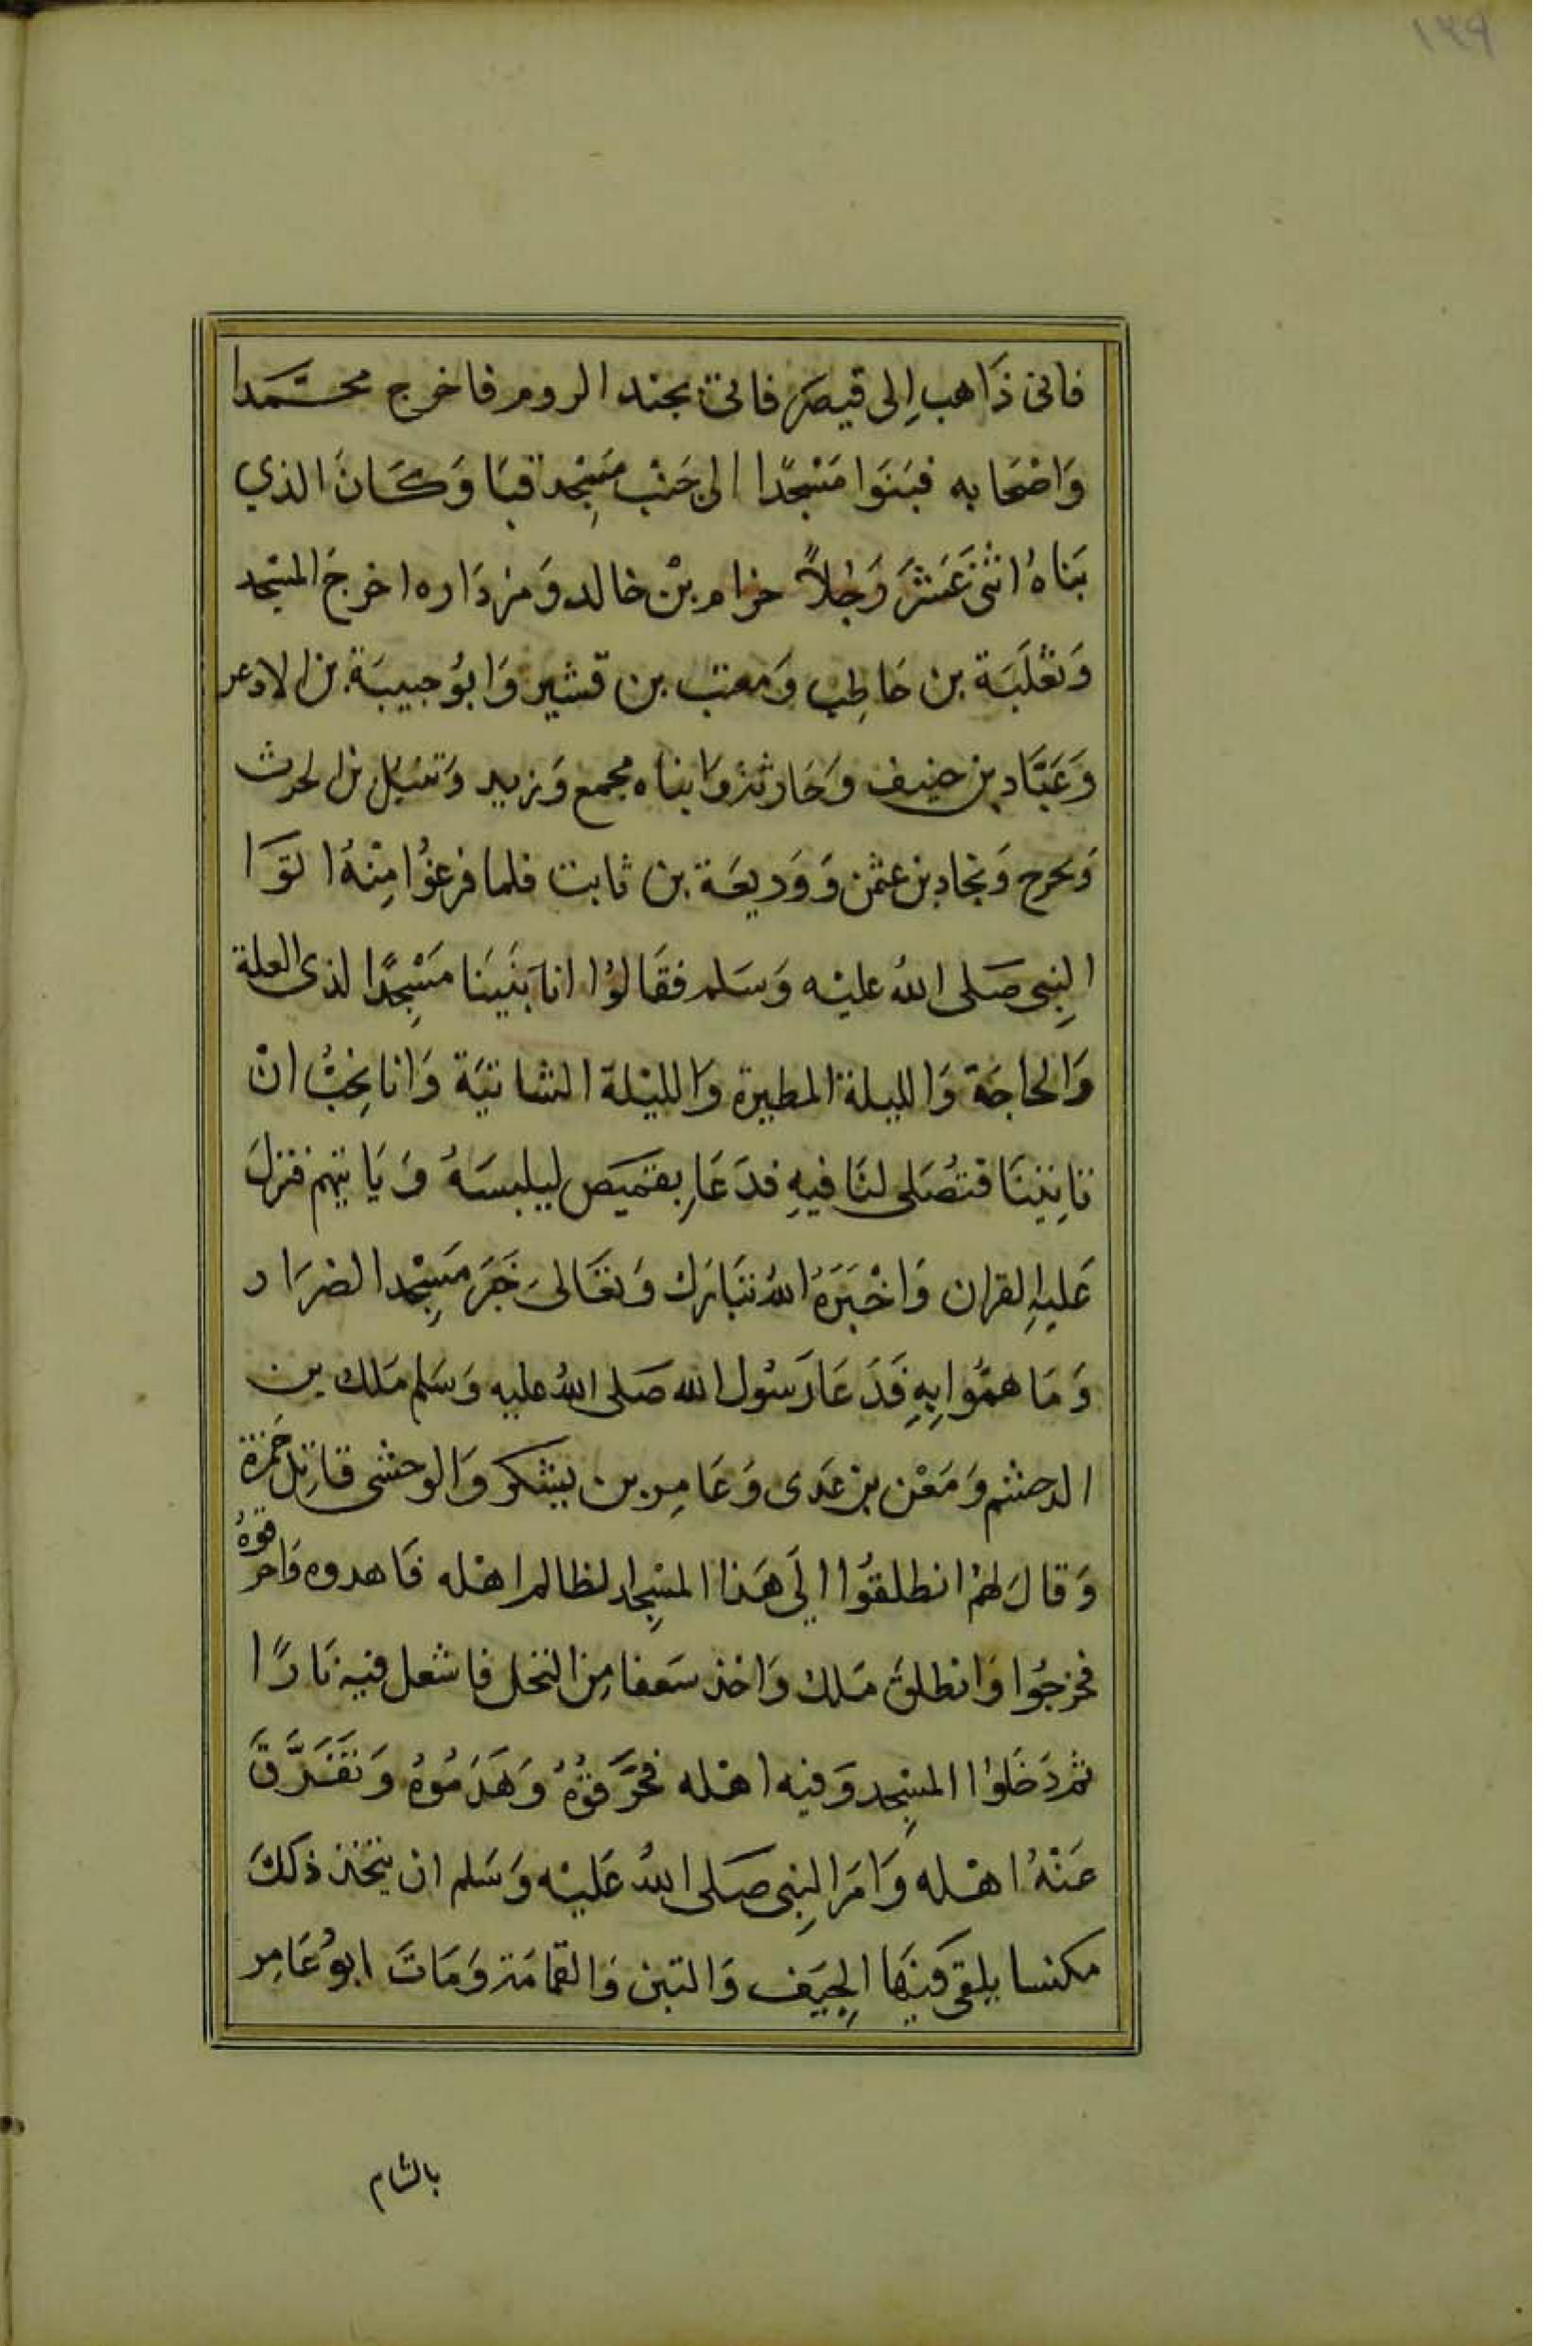 ١٣٩
فانى ذَاهب اِلى قيصَر فاتى بجند الروم فاخرج محمَّدا
وَاصْحَابه فبَنَوا مَسْجدًا الى جَنْب مَسِْجد قبَا وَكَانَ الذي
بَناهُ اثنى عَشَرَ رَجُلاً خزام بْن خالد وَمن دَاره اخرجَ المسْجد
وَثعْلَبَة بن حَاطِب وَمعتب بن قشير وَابوُ حبيبَة بن الادعر
وَعَبَّاد بن حنيف وَحَارثة وَابناه مجمع وَزيد وَنبتل بن الحرث
وَبحرج وَبجاد بن عثمن وَوَديعَة بن ثابت فلما فرغوُا مِنْهُ اتوَا
النِبى صَلى اللهُ عليْه وَسَلم فقَالوُا انا بَنَينَا مَسْجِدًا لذى العلة
وَالحاجَة وَالليلة المطيرة وَالليْلة الشاتيَة وَانا نحِبُّ انْ
تاتِيَنَا فتُصَلى لنَا فيهِ فدَعَا بِقميَص ليلبسَهُ وَيَاتيهم فنزلَ
عَليهِ القران وَاخْبَرَهُ اللهُ تبَارَك وَتعَالىَ خَبَر مَسِْجد الضرَار
وَمَا همُّوا بِهِ فَدَعَا رَسُول الله صَلى اللهُ عليه وَسَلم مَلك بن
الدحشم وَمَعْن بن عَدى وَعَامِر بن يشكر وَالوحشى قاتِل حَمزة
وَقالَ لهمْ انطلقُوا اِلَى هَذا المسْجِد الظالم اهْله فَاهدموه وَاحرقوهُ
فخرجُوا وَانطلقَ مَلك وَاخذ سَعفا مِن النخل فاشعل فيه نَارًا
ثم دَخَلوْا المسْجِد وَفيه اهْله فحرَّقوُهُ وَهَدَمُوهُ وَتَفَرَّقَ
عَنْهُ اهْله وَامَر النِبى صَلى اللهُ عَليْه وَسَلم ان يتخذ ذلكَ
مكنسا يلقى فيَهَا الجِيَف وَالتبن وَالقمامَة وَمَاتَ ابوُ عَامِر
بالشام